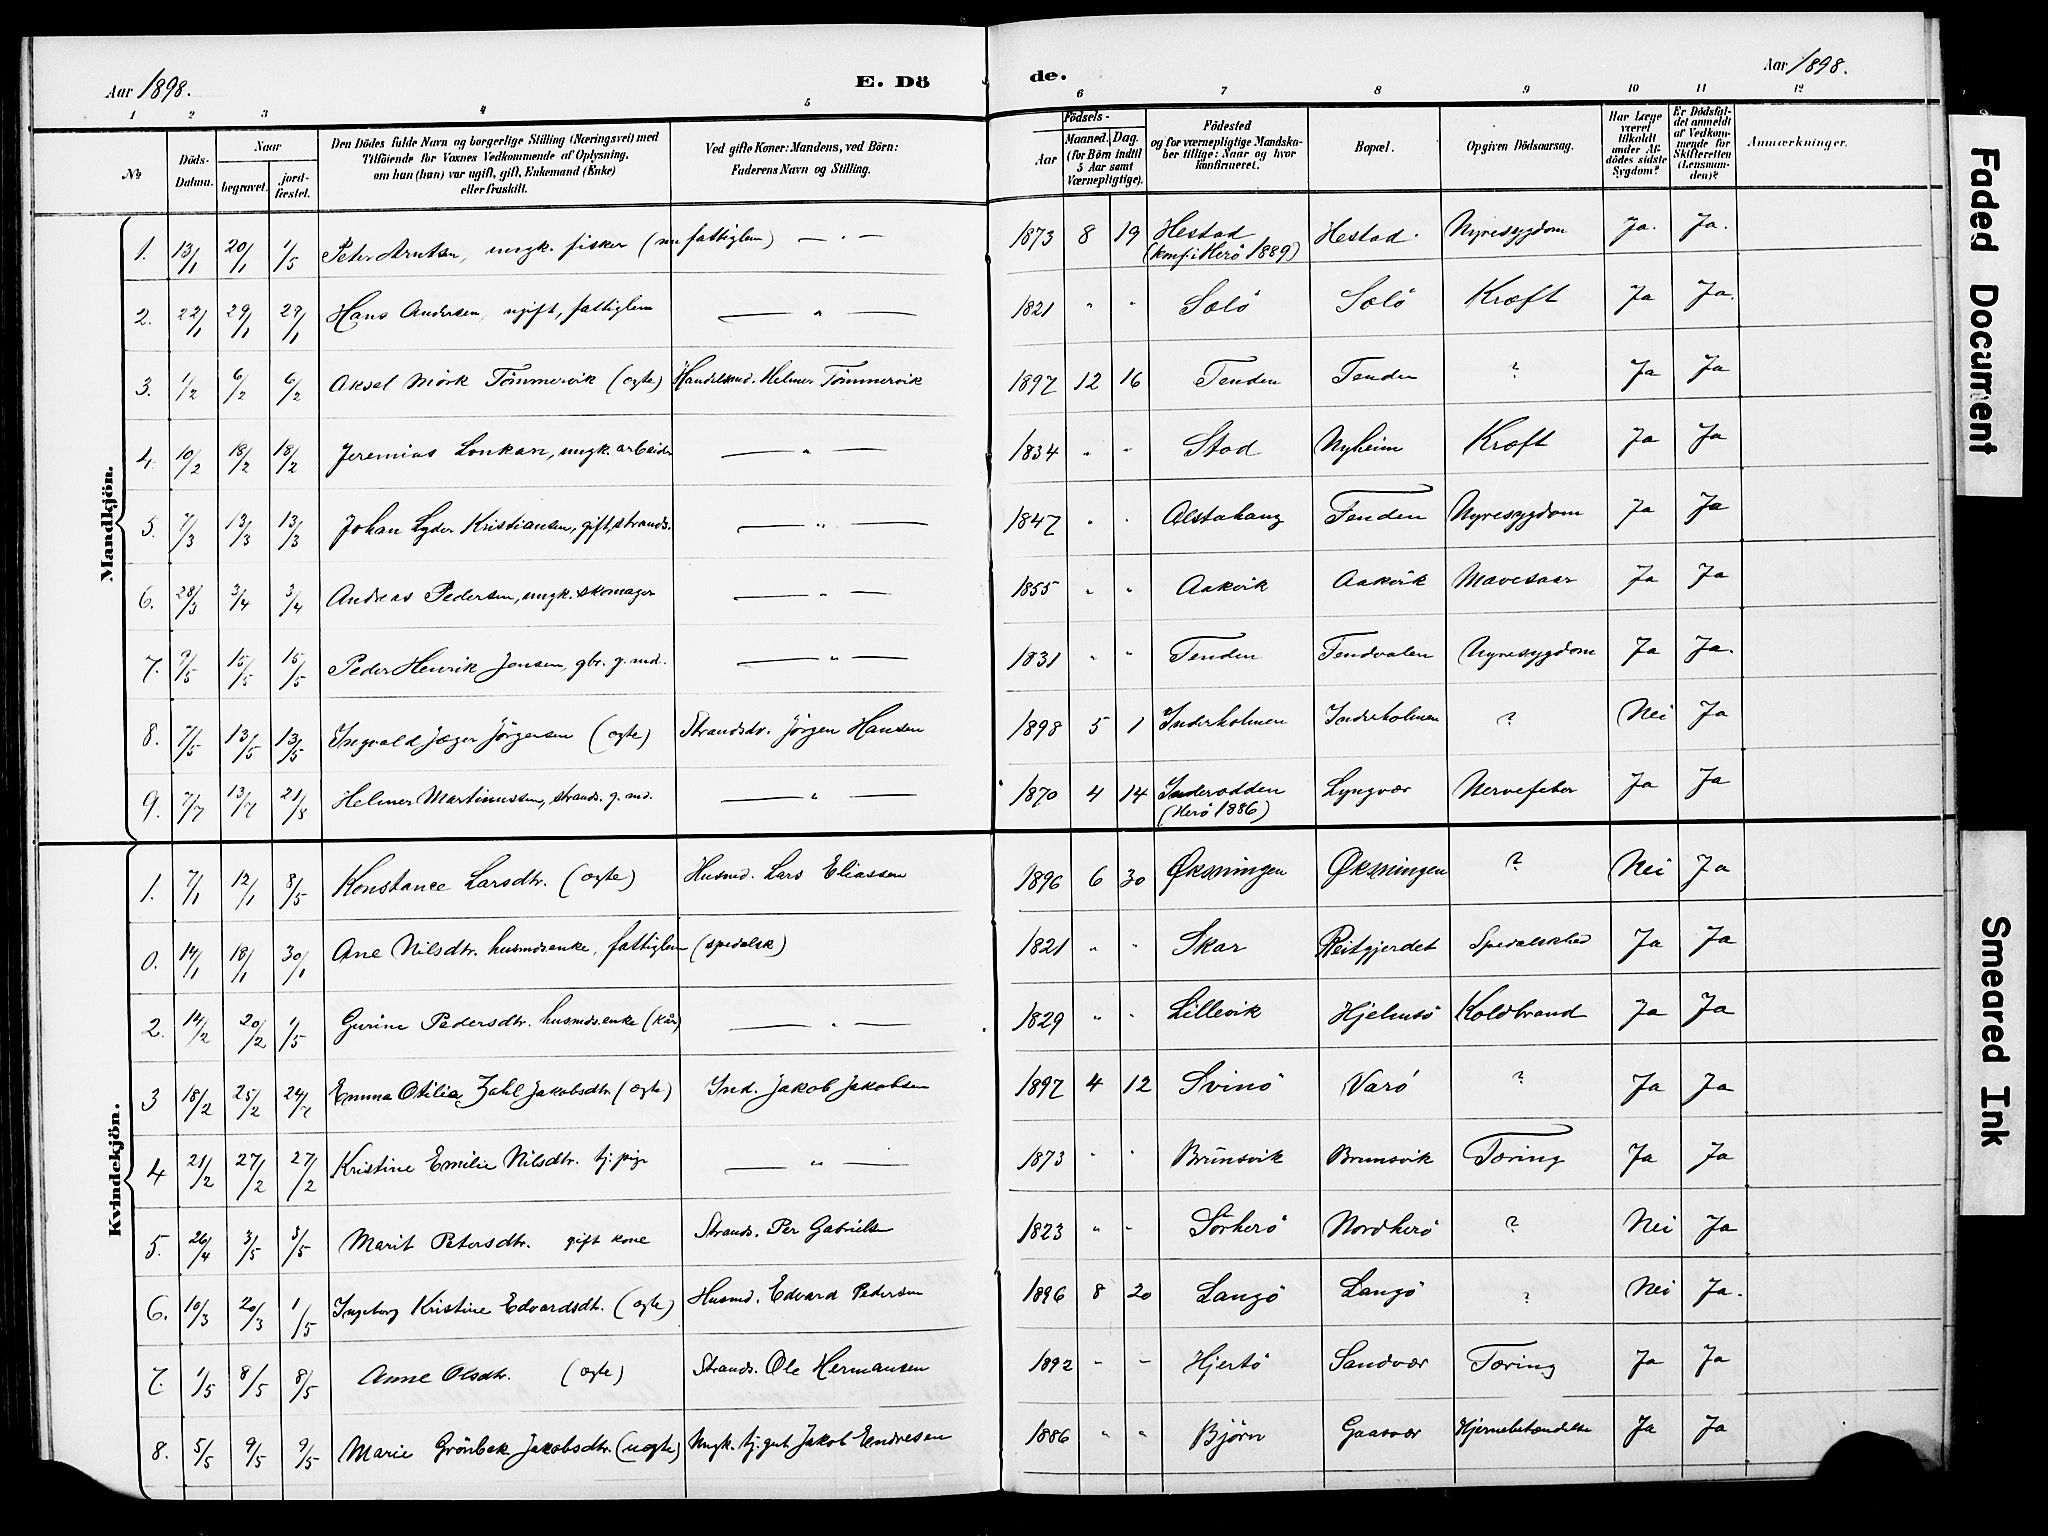 Aar 1898.
E. Dö
de.
Aar 1898.
1 2 3 4 5 6 7 8 9 10 11 12
No
Döds-Datum.
Naar
begravet.
jord-fæstet.
Den Dödes fulde Navn og borgerlige Stilling (Næringsvei) med
Tilföiende for Voxnes Vedkommende af Oplysning,
om han (hun) var ugift, gift, Enkemand (Enke)
eller fraskilt.
Ved gifte Koner: Mandens, ved Börn:
Faderens Navn og Stilling.
Födsels-
Aar
Maaned. Dag.
(for Börn indtil
5 Aar samt
Værnepligtige).
Födested
og for værnepligtige Mandska-
ber tillige: Naar og hvor
konfirmeret.
Bopæl.
Opgiven Dödsaarsag.
Har Læge
været
tilkaldt
under Af-
dödes sidste
Sygdom?
Er Dödsfal-
det anmeldt
af Vedkom-
mende for
Skifteretten
(Lensman-
den)?
Anmærkninger.
Mandkjön.
1. 13/1 20/1 1/5 Peter Arntsen, ungk. fisker (nu fattiglem) — " — 1873 8 19 Hestad (konf. i Herö 1889) Hestad. Nyresygdom Ja. Ja.
2. 22/1 29/1 29/1 Hans Andersen, ugift, fattiglem — " — 1821 " " Solö Solö Kræft Ja Ja.
3. 1/2 6/2 6/2 Aksel Mörk Tömmervik (ægte) Handelsmd. Helmer Tömmervik 1897 12 16 Tenden Tenden ? Ja Ja
4. 10/2 18/2 18/2 Jeremias Lonkan, ungk. arbeider — " — 1834 " " Stod Nyheim Kræft Ja Ja
5. 7/3 13/3 13/3 Johan Lyder Kristiansen, gift, strands. — " — 1847 " " Alstahaug Tenden Nyresygdom Ja Ja
6. 28/3 3/4 3/4 Andreas Pedersen, ungk. skomager — " — 1855 " " Aakvik Aakvik Mavesaar Ja Ja
7. 7/5 15/5 15/5 Peder Henrik Jensen, gbr. g. md. — " — 1831 " " Tenden Tendvalen Nyresygdom Ja Ja.
8. 7/5 13/5 13/5 Ingvald Jæger Jörgensen (ægte) Strandsdr. Jörgen Hansen 1898 5 1 Inderholmen Inderholmen ? Nei Ja
9. 7/7 13/7 21/8 Helmer Martinussen, strands. g. md. — " — 1870 4 14 Inderodden (Herö 1886) Lyngvær Nervefeber Ja Ja
Kvindekjön.
1. 7/1 12/1 8/5 Konstance Larsdtr. (ægte) Husmd. Lars Eliassen 1896 6 30 Øksningen Øksningen ? Nei Ja
0. 14/1 18/1 30/1 Ane Nilsdtr. husmdsenke, fattiglem (spedalsk) 1821 " " Skar Reitgjerdet Spedalskhed Ja Ja
2. 14/2 20/2 1/5 Gurine Pedersdtr. husmdsenke (kår) — " — 1829 " " Lillevik Hjelmsö Koldbrand Ja Ja
3 18/2 25/2 24/7 Emma Otilia Zahl Jakobsdtr. (ægte) Ind. Jakob Jakobsen 1897 4 12 Svinö Varö ? Ja Ja
4 21/2 27/2 27/2 Kristine Emilie Nilsdtr. tj. pige — " — 1873 " " Brunsvik Brunsvik Tæring Ja Ja
5. 26/4 3/5 8/5 Marit Petersdtr. gift kone Strands. Per Gabrielsen 1823 " " Sörherö Nordherö ? Nei Ja
6. 10/3 20/3 1/5 Ingeborg Kristine Edvardsdtr. (ægte) Husmd. Edvard Pedersen 1896 8 20 Langö Langö ? Nei Ja.
7. 1/5 8/5 8/5 Anne Olsdtr. (ægte) Strands. Ole Hermansen 1892 " " Hjertö Sandvær Tæring Ja Ja
8. 5/5 9/5 9/5 Marie Grönbek Jakobsdtr. (uægte) Ungk. tj. gut Jakob Endresen 1886 " " Björn Gaasvær Hjernebetændelse Ja Ja
Faded Document
Smeared Ink